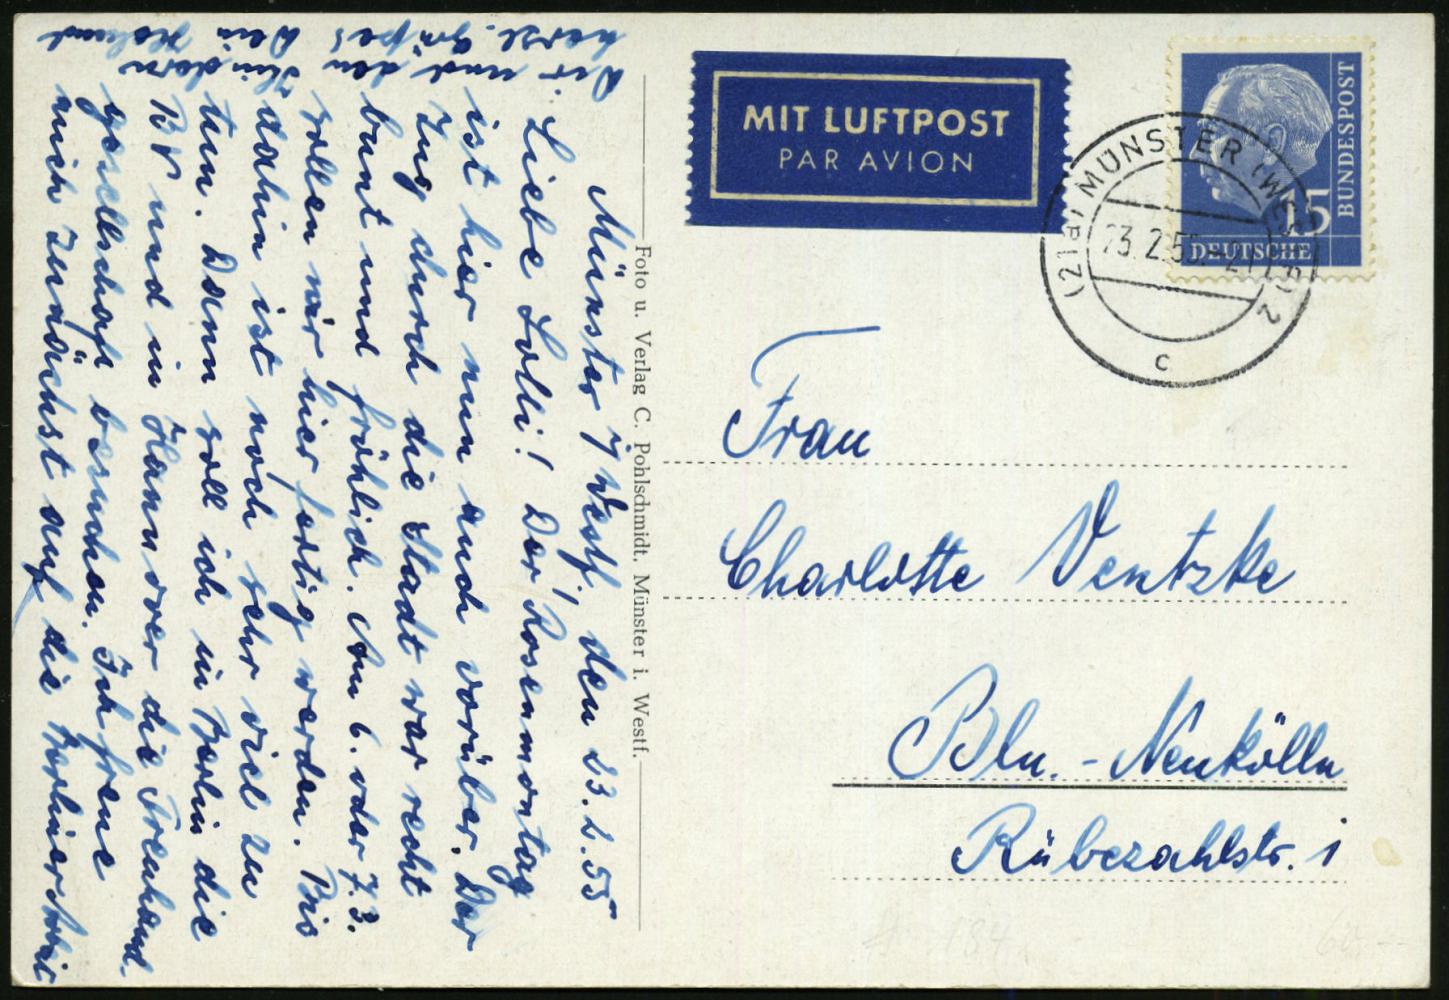 Münster / Westf., den 23.2.55
Liebe Lolli! Der Rosenmontag
ist hier nun auch vorüber. Der
Zug durch die Stadt war recht
bunt und fröhlich. Am 6. oder 7.3.
sollen wir hier fertig werden. Bis
dahin ist noch sehr viel zu
tun. Dann soll ich in Berlin die
BV und in Hannover die Treuhand-
gesellschaft besuchen. Ich freue
mich zunächst auf die Berliner
Dir und den Kindern
herzl. Grüße Dein
Foto u. Verlag C. Pohlschmidt, Münster i. Westf.
MIT LUFTPOST
PAR AVION
DEUTSCHE
BUNDESPOST
25
(21a) MÜNSTER (WESTF) 2
23.2.55
c
Frau
Charlotte Ventzke
Bln.-Neukölln
Rübezahlstr. 1
184